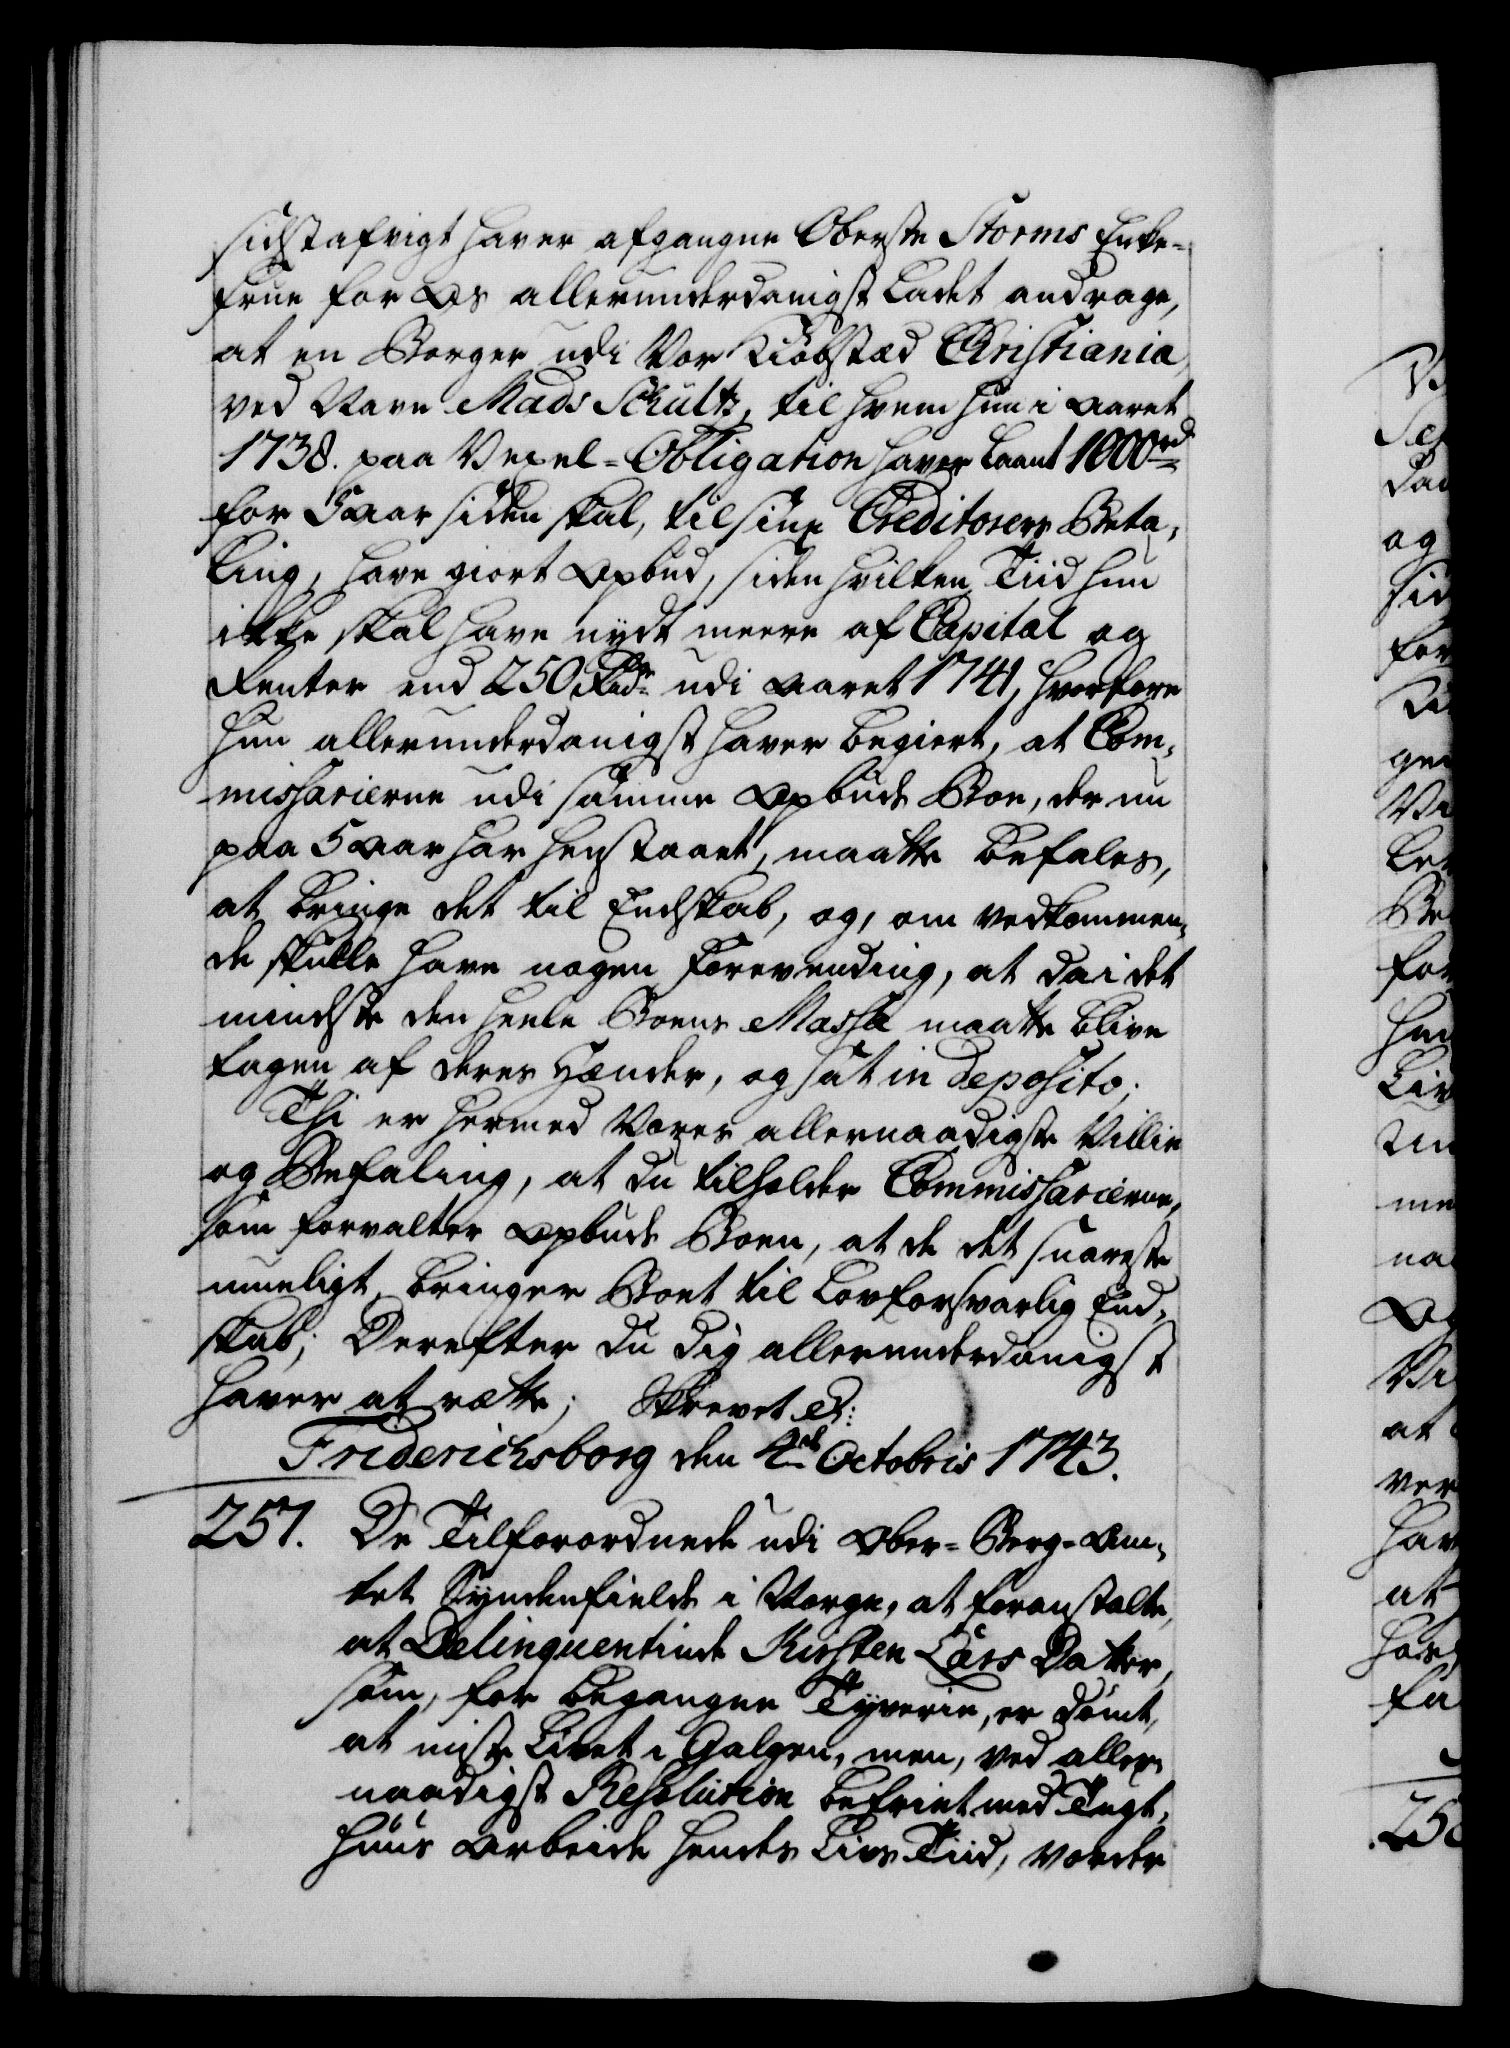 sidstafvigt haver afgangne Oberste Storms Enke-
frue for Os allerunderdanigst ladet andrage,
at en Borger udi Vor Kiøbstæd Christiania
ved Navn Mads Schultz, til hvem hun i Aaret
1738. paa Vexel-Obligation haver laant 1000 rd
for 5 Aar siden skal, til sine Creditorers Beta-
ling, have giort Opbud, siden hvilken Tiid hun
ikke skal have nydt meere af Capital og
Renter end 250 Rdr udi Aaret 1741, hvorfore
hun allerunderdanigst haver begiert, at Com-
missarierne udi samme Opbuds Boe, der nu
paa 5 Aar har henstaaet, maatte befales,
at bringe det til Endskab, og, om vedkommen-
de skulle have nogen Forevending, at da i det
mindste den heele Boens Massa maatte blive
tagen af deres Hænder, og sat in deposito;
Thi er hermed Vores allernaadigste Villie
og Befaling, at du tilholder Commissarierne,
som forvalter Opbuds Boen, at de det snareste
mueligt bringer Boet til lovforsvarlig End-
skab; Derefter du dig allerunderdanigst
haver at rette; Skrevet &:
Friderichsborg den 4de Octobris 1743.
257. De Tilforordnede udi Ober-Berg-Am-
tet Syndenfields i Norge, at foranstalte,
at Delinquentinde Kirsten Lars Datter,
som, for begangne Tyverie, er dømt,
at miste Livet i Galgen, men, ved aller-
naadigst Resolution befriet med Tugt-
huus Arbeide hendes Livs Tiid, vorder